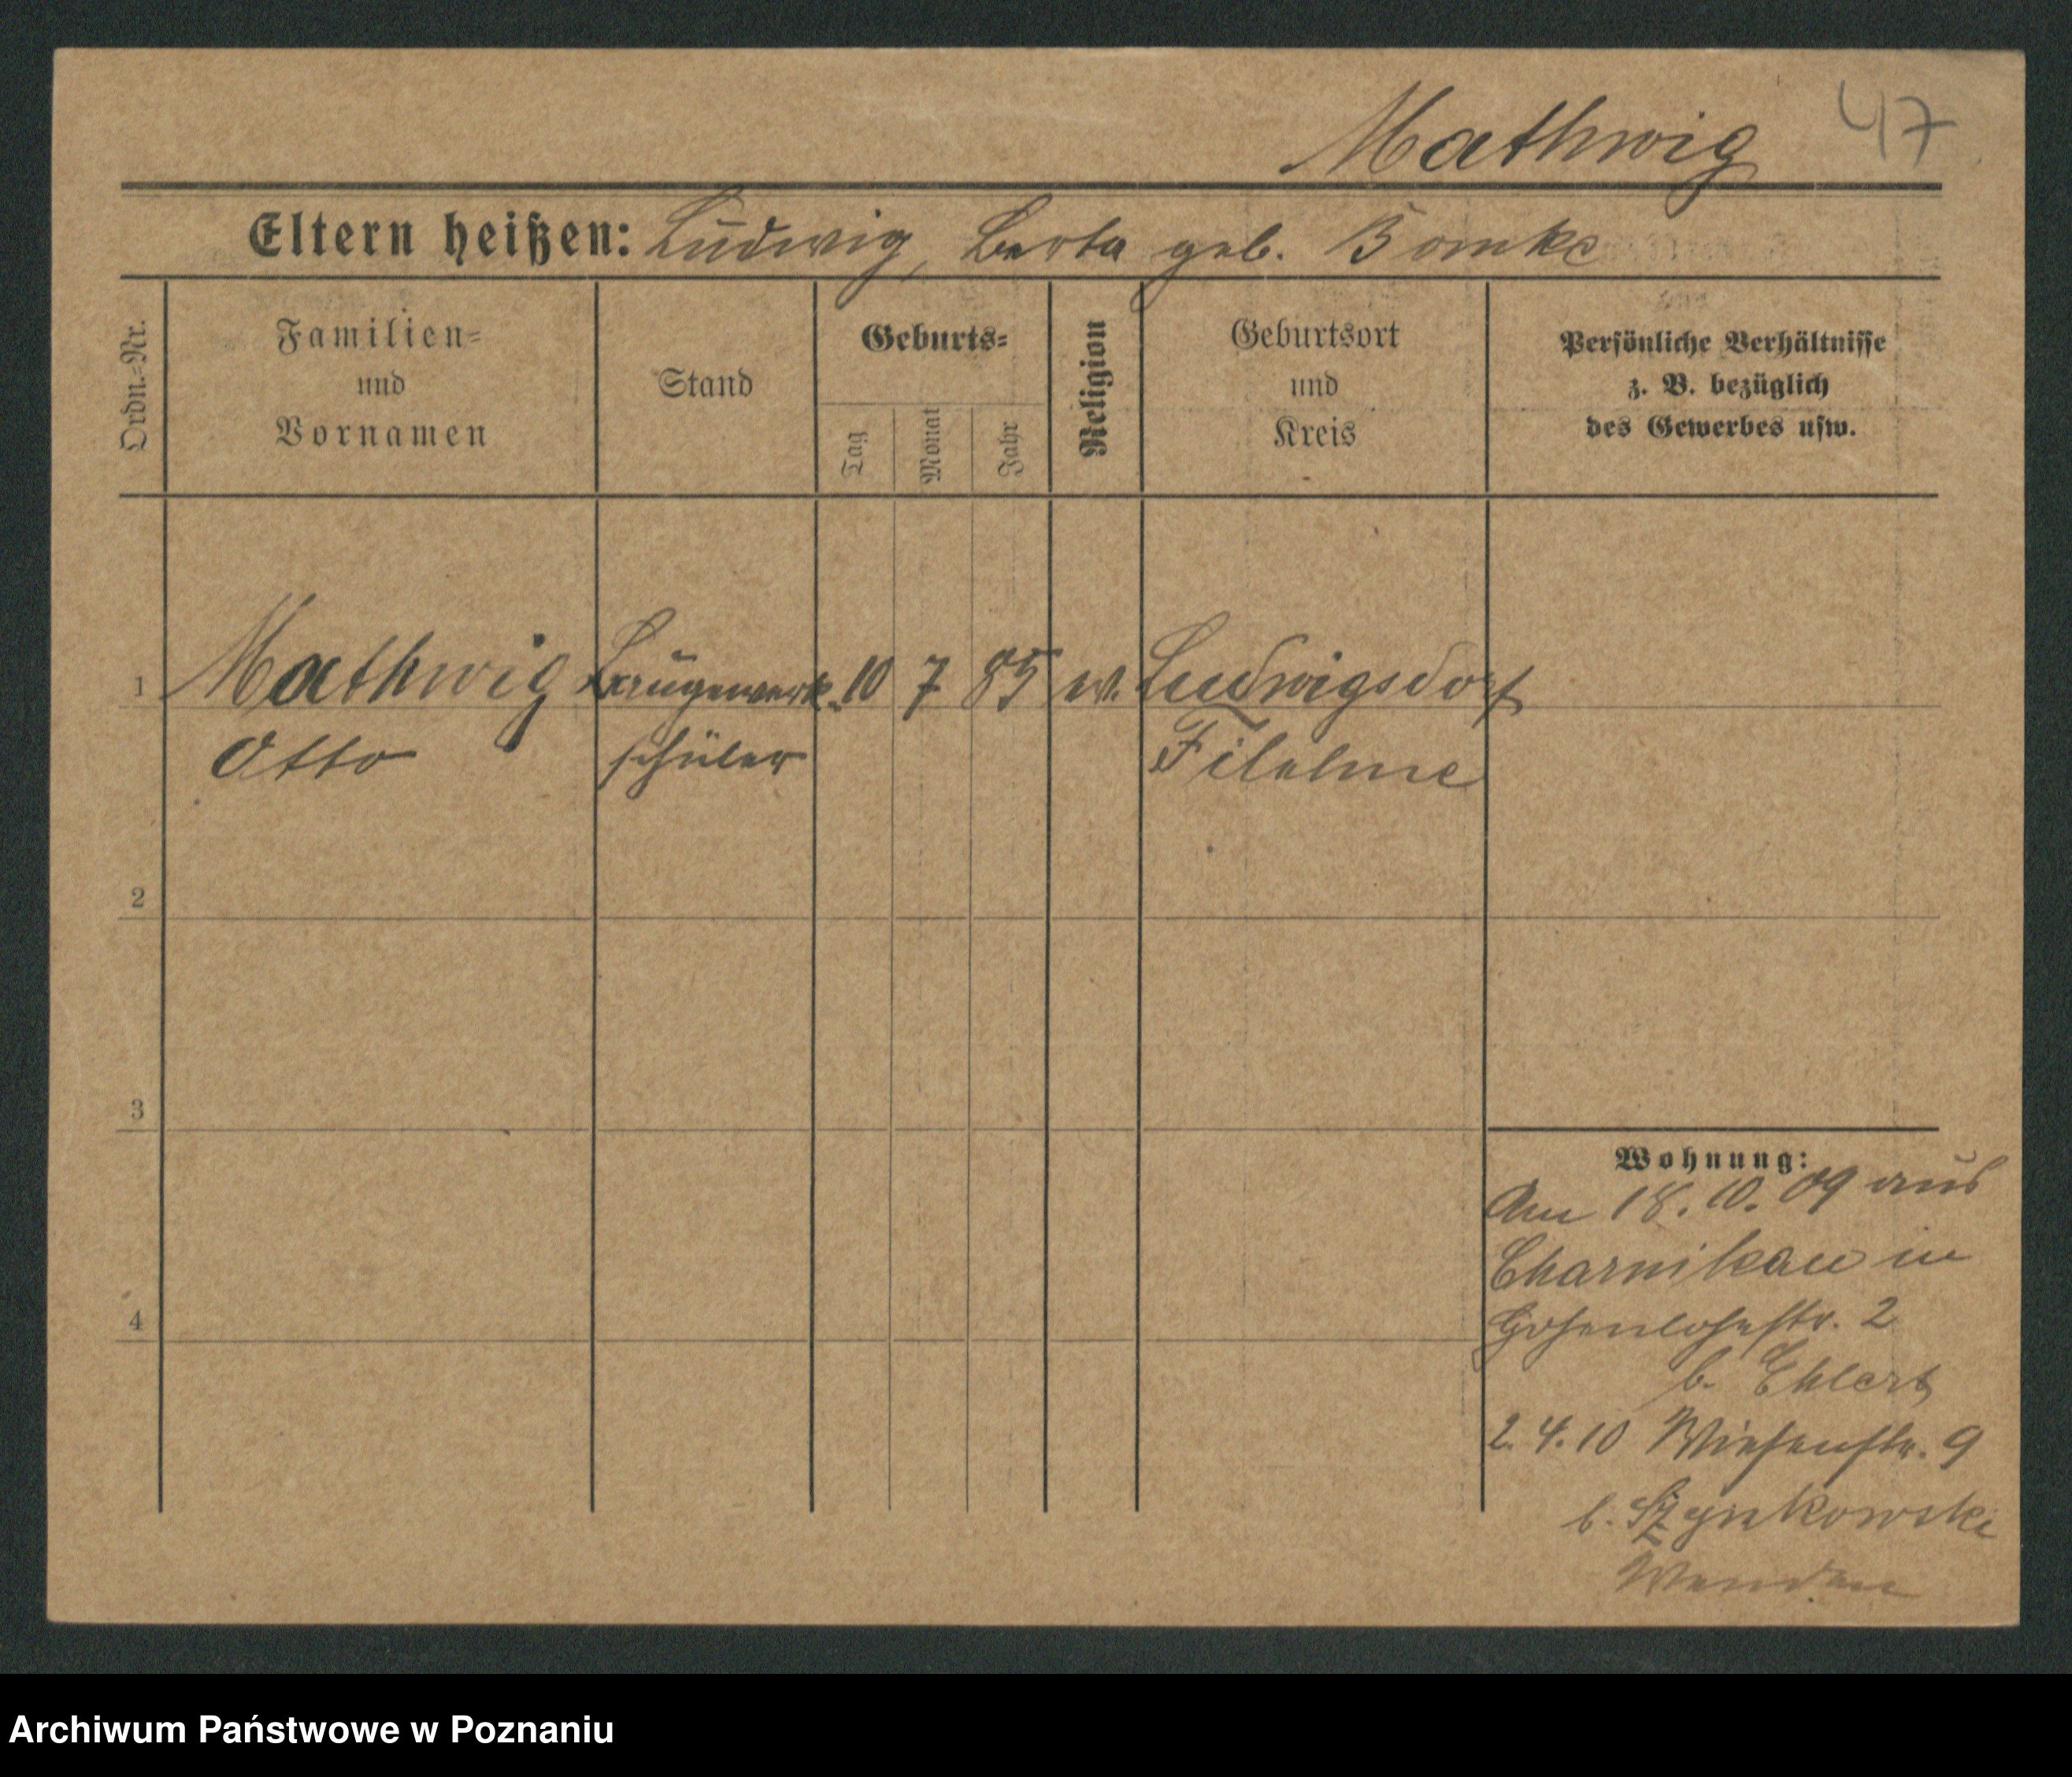 Mathwig 47
Eltern heißen: Ludwig, Berta geb. Bomke
Ordn.-Nr.
Familien-
und
Vornamen
Stand
Geburts-
Tag
Monat
Jahr
Religion
Geburtsort
und
Kreis
Persönliche Verhältnisse
z. B. bezüglich
des Gewerbes usw.
1 Mathwig Baugewerk. 10 7 85 ev. Ludwigsdorf
Otto schüler Filehne
2
3
4
Wohnung:
Am 18. 10. 09 aus
Charnikau in
Hohenlohestr. 2
b. Ehlert
2. 4. 10 Wiesenstr. 9
b.
Archiwum Państwowe w Poznaniu